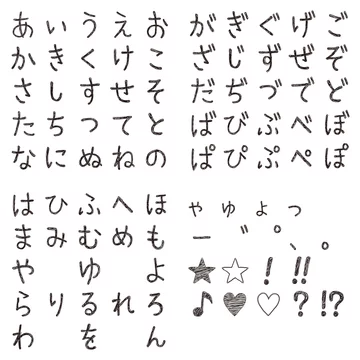 あいうえお
かきくけこ
さしすせそ
たちつてと
なにぬねの
がぎぐげご
ざじずぜぞ
だぢづでど
ばびぶべぼ
ぱぴぷぺぽ
はひふへほ
まみむめも
やゆよ
らりるれろ
わをん
ゃゅょっ
ー゛゜、。
★☆!!!
♪♥♡?!?